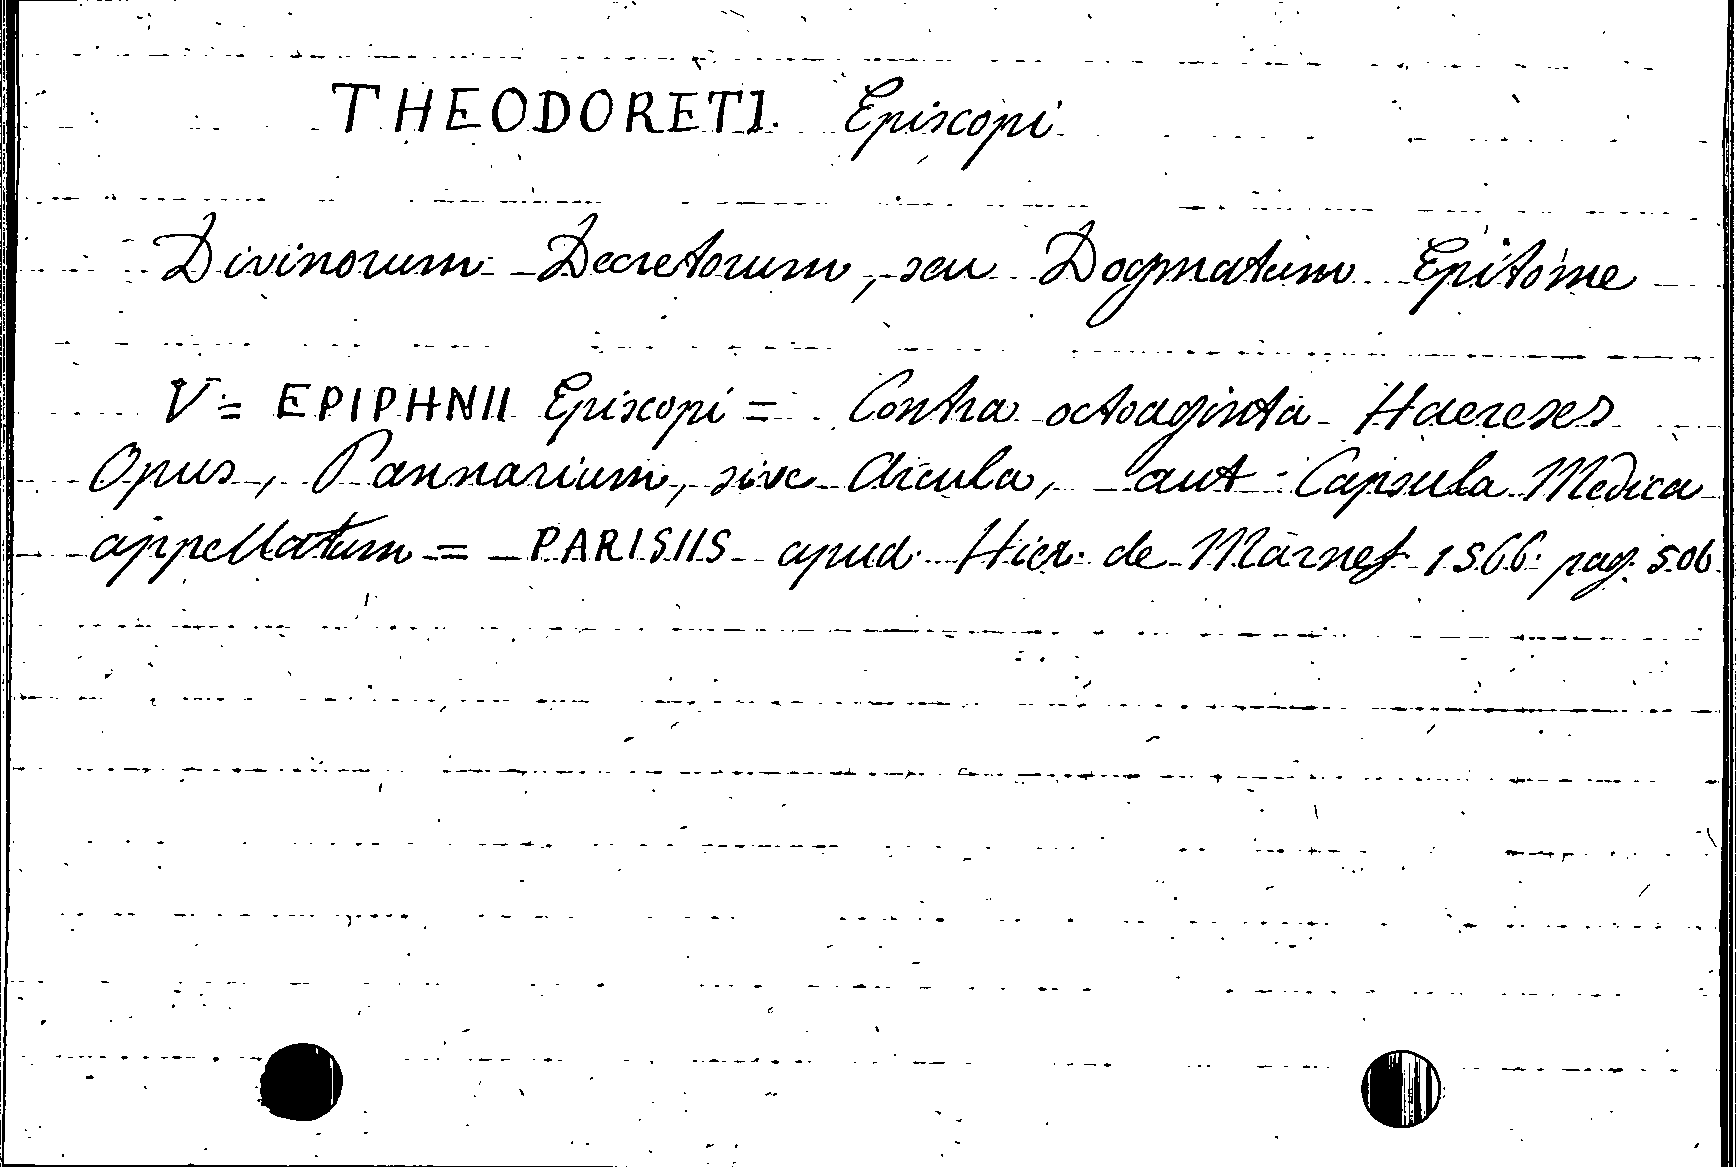 THEODORETI. Episcopi
Divinorum Decretorum, seu Dogmatum Epitome
V= EPIPHNII Episcopi = Contra octoaginta Haereses
Opus, Pannarium, sive Arcula, aut Capsula Medica
appellatum = PARISIIS apud Hier. de Marnef 1566 pag. 506